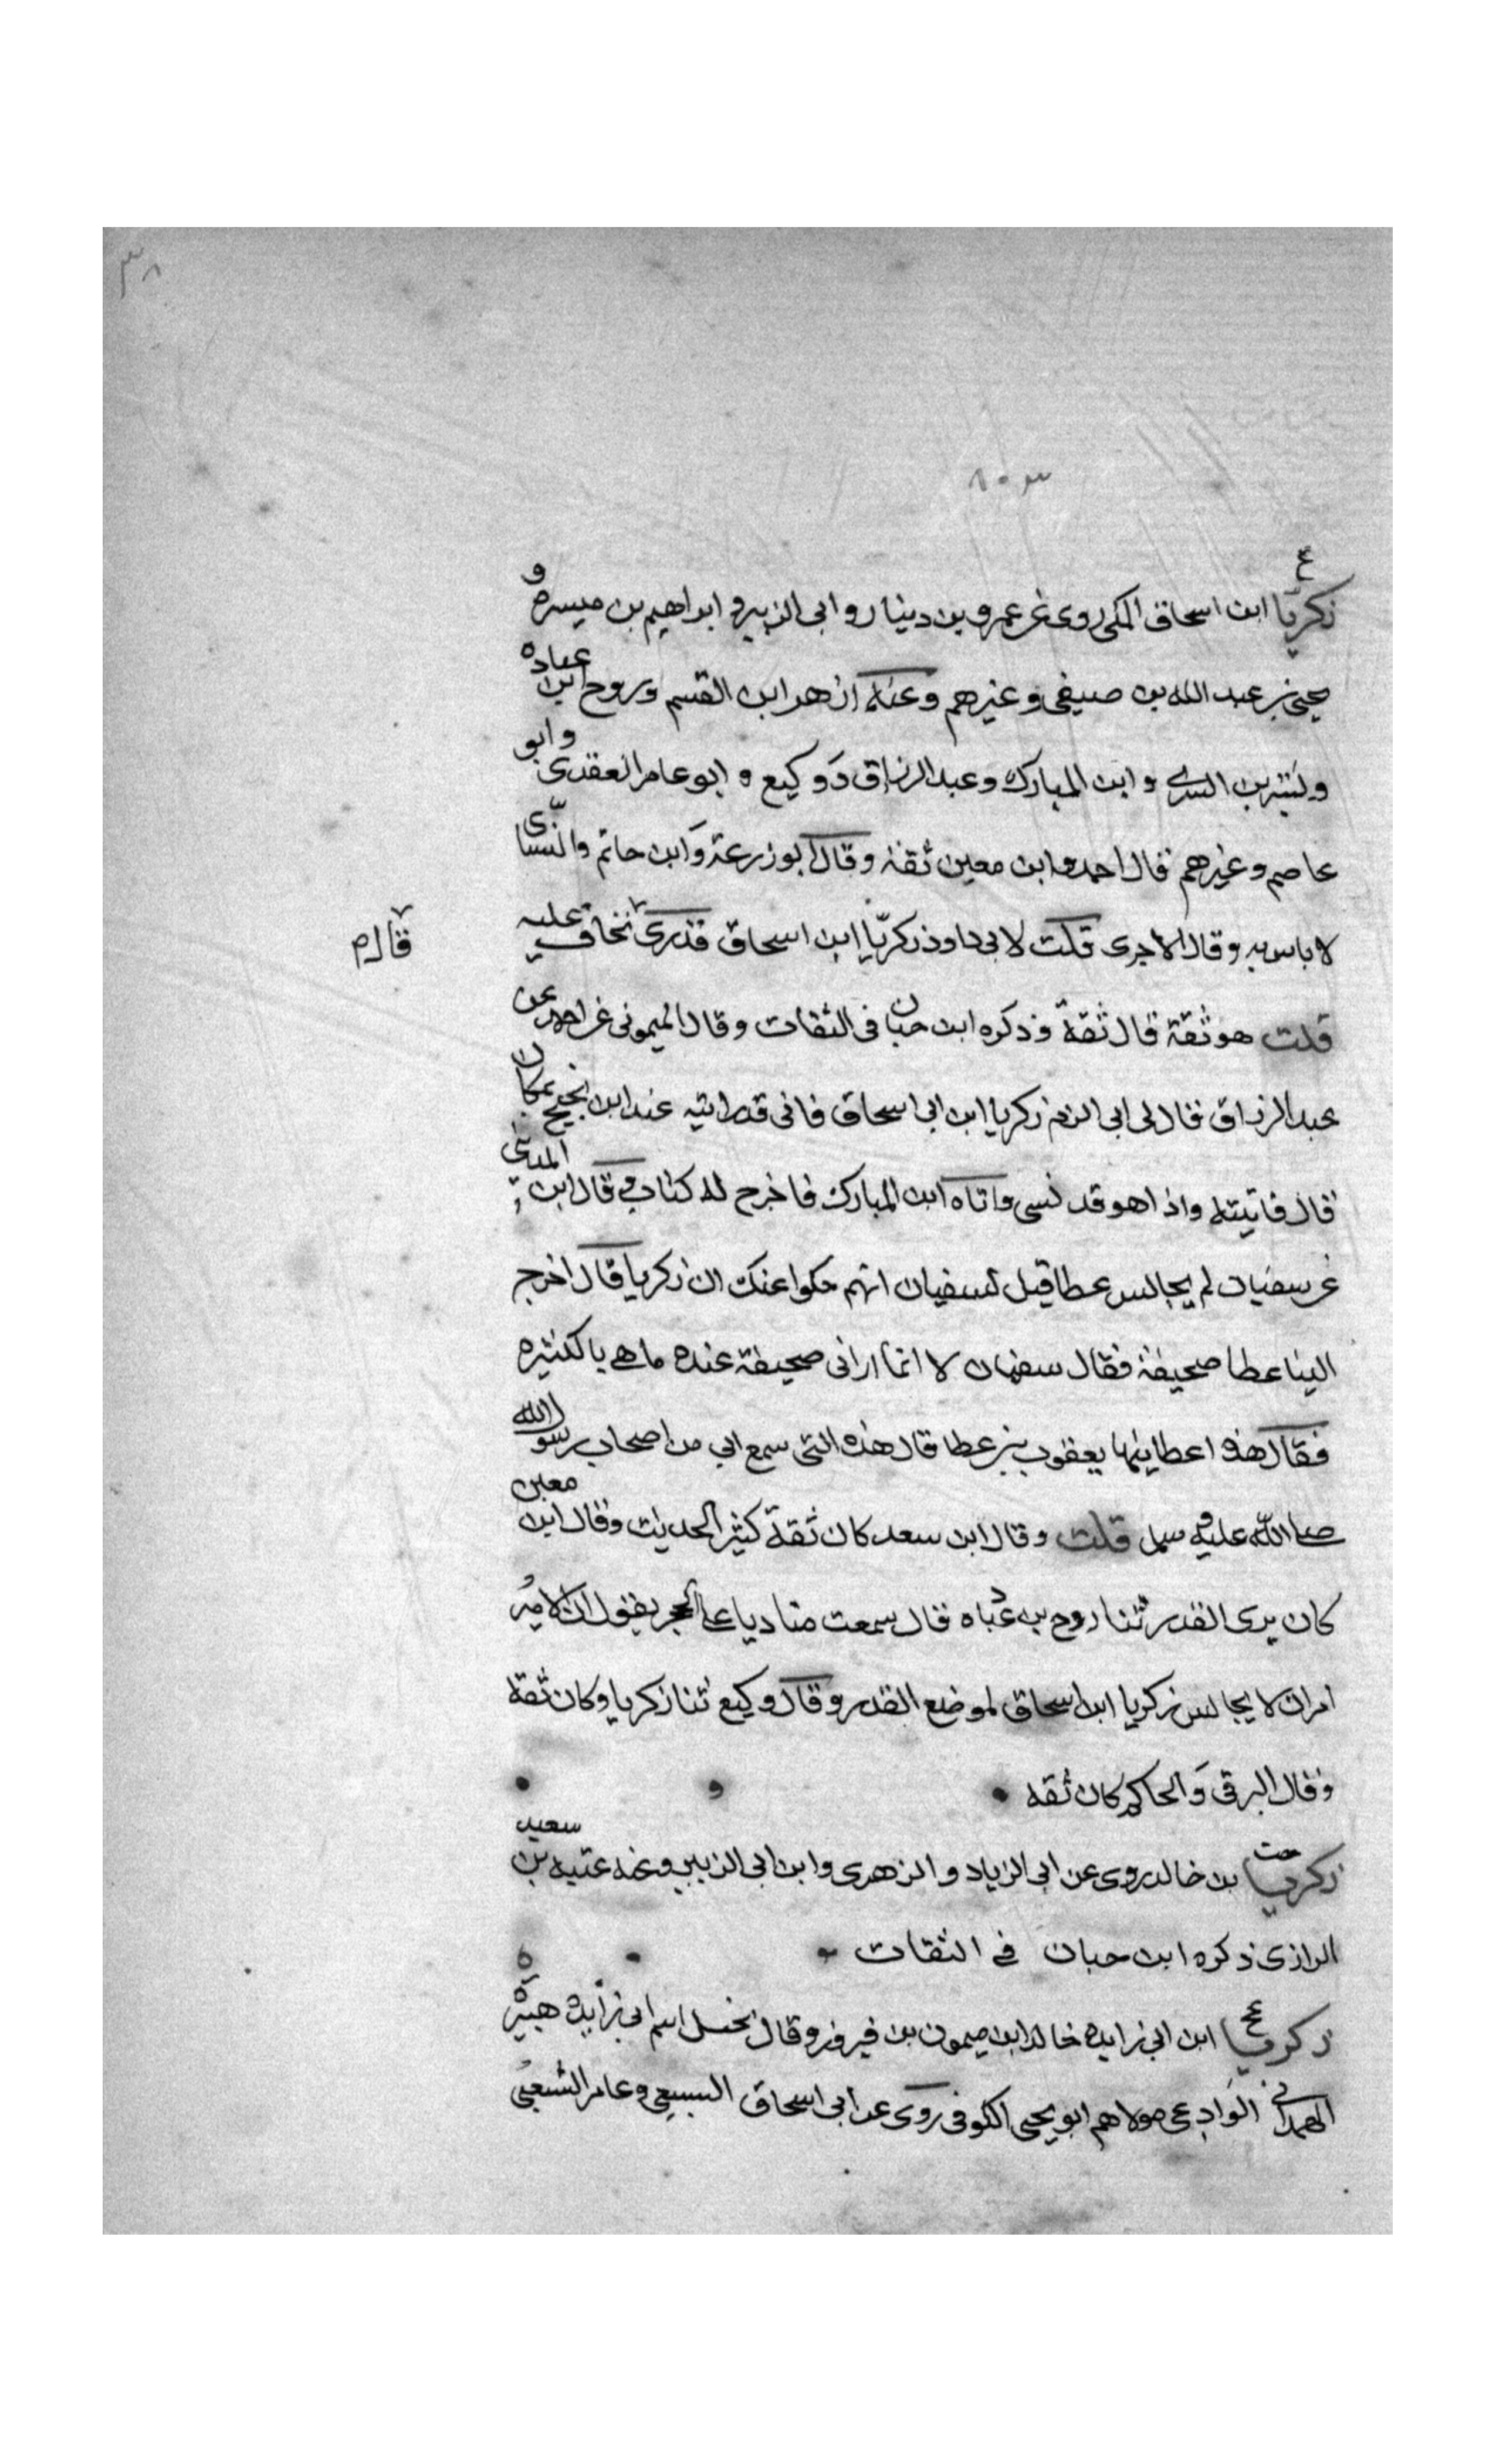 ٣٨
٨٠٣
ع
زكريا ابن اسحاق المكى روى عن عمرو بن دينار و ابى الزبير و ابراهيم بن ميسره و
يحيى بن عبد الله بن صيفى وغيرهم وعنه ازهر ابن القسم وروح ابن عباده
وبشر بن السرى و ابن المبارك وعبد الرزاق ووكيع و ابو عامر العقدى وابو
عاصم وغيرهم قال احمد وابن معين ثقة وقال ابو زرعة وابن حاتم والنسائى
لا باس به وقال الاجرى قلت لابى داود زكريا ابن اسحاق قدرى نخاف عليه
قال م
قلت هو ثقة قال ثقة وذكره ابن حبان فى الثقات وقال الميمونى عن احمد عن
عبد الرزاق قال لى ابى الزم زكريا ابن ابى اسحاق فانى قد رايته عند ابن نجيح بمكان
قال فاتيته واذا هو قد نسى واتاه ابن المبارك فاخرج له كتابه وقال ابن المدينى
عن سفيان لم يجالس عطا قيل لسفيان انهم حكوا عنك ان زكريا قال اخرج
الينا عطا صحيفة فقال سفيان لا انما ارانى صحيفة عنده ما هى بالكثيره
فقال هذه اعطانيها يعقوب بن عطا قال هذه التى سمع ابى من اصحاب رسول الله
صلى الله عليه وسلم قلت وقال ابن سعد كان ثقة كثير الحديث وقال ابن معين
كان يرى القدر ثنا روح بن عباده قال سمعت مناديا على الحجر يقول ان الامير
امر ان لا يجالس زكريا ابن اسحاق لموضع القدر وقال وكيع ثنا زكريا وكان ثقة
وقال البرقى والحاكم كان ثقه
زكريا بن خالد روى عن ابى الزياد و الزهرى وابن ابى الزبير وعنه عتبه بن سعيد
الرازى ذكره ابن حبان فى الثقات ه
زكريا ع ابن ابى زايده خالد ابن ميمون بن فيروز وقال بحشل اسم ابى زايده هبيره
الهمدانى الوادعى مولاهم ابو يحيى الكوفى روى عن ابى اسحاق السبيعى وعامر الشعبى